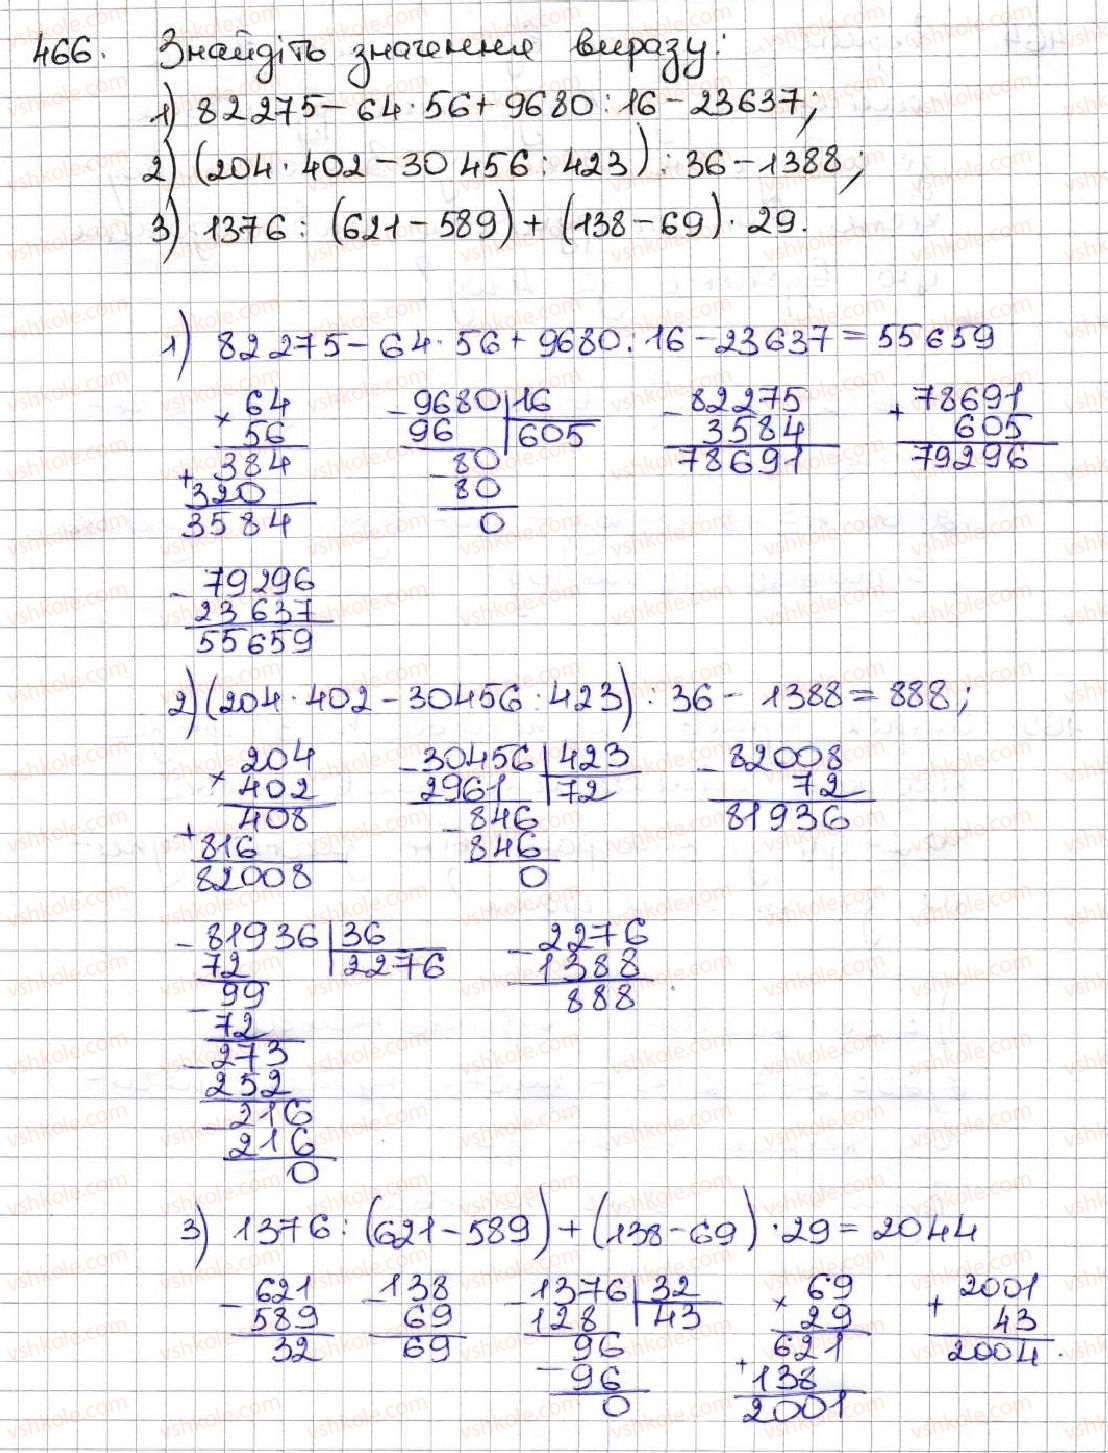 466. Знайдіть значення виразу:
1) 82 275 - 64 · 56 + 9680 : 16 - 23637;
2) (204 · 402 - 30 456 : 423) : 36 - 1388;
3) 1376 : (621 - 589) + (138 - 69) · 29.
1) 82 275 - 64 · 56 + 9680 : 16 - 23637 = 55659
× 64 - 9680 | 16 - 82275 + 78691
56 96 | 605 3584 605
+ 384 - 80 78691 79296
320 80
3584 0
- 79296
23637
55659
2) (204 · 402 - 30456 : 423) : 36 - 1388 = 888;
× 204 - 30456 | 423 - 82008
402 2961 | 72 72
+ 408 - 846 81936
816 846
82008 0
- 81936 | 36 - 2276
72 | 2276 1388
- 99 888
72
- 273
252
- 216
216
0
3) 1376 : (621 - 589) + (138 - 69) · 29 = 2044
- 621 - 138 - 1376 | 32 × 69 + 2001
589 69 128 | 43 29 43
32 69 - 96 + 621 2004.
96 138
0 2001